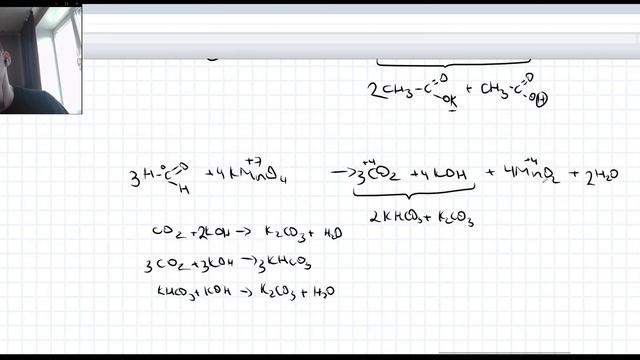 2CH₃-C(=O)-OK + CH₃-C(=O)-OH
3H-C⁰(=O)-H + 4KMn⁺⁷O₄ → 3C⁺⁴O₂ + 4KOH + 4Mn⁺⁴O₂ + 2H₂O
2KHCO₃ + K₂CO₃
CO₂ + 2KOH → K₂CO₃ + H₂O
3CO₂ + 3KOH → 3KHCO₃
KHCO₃ + KOH → K₂CO₃ + H₂O